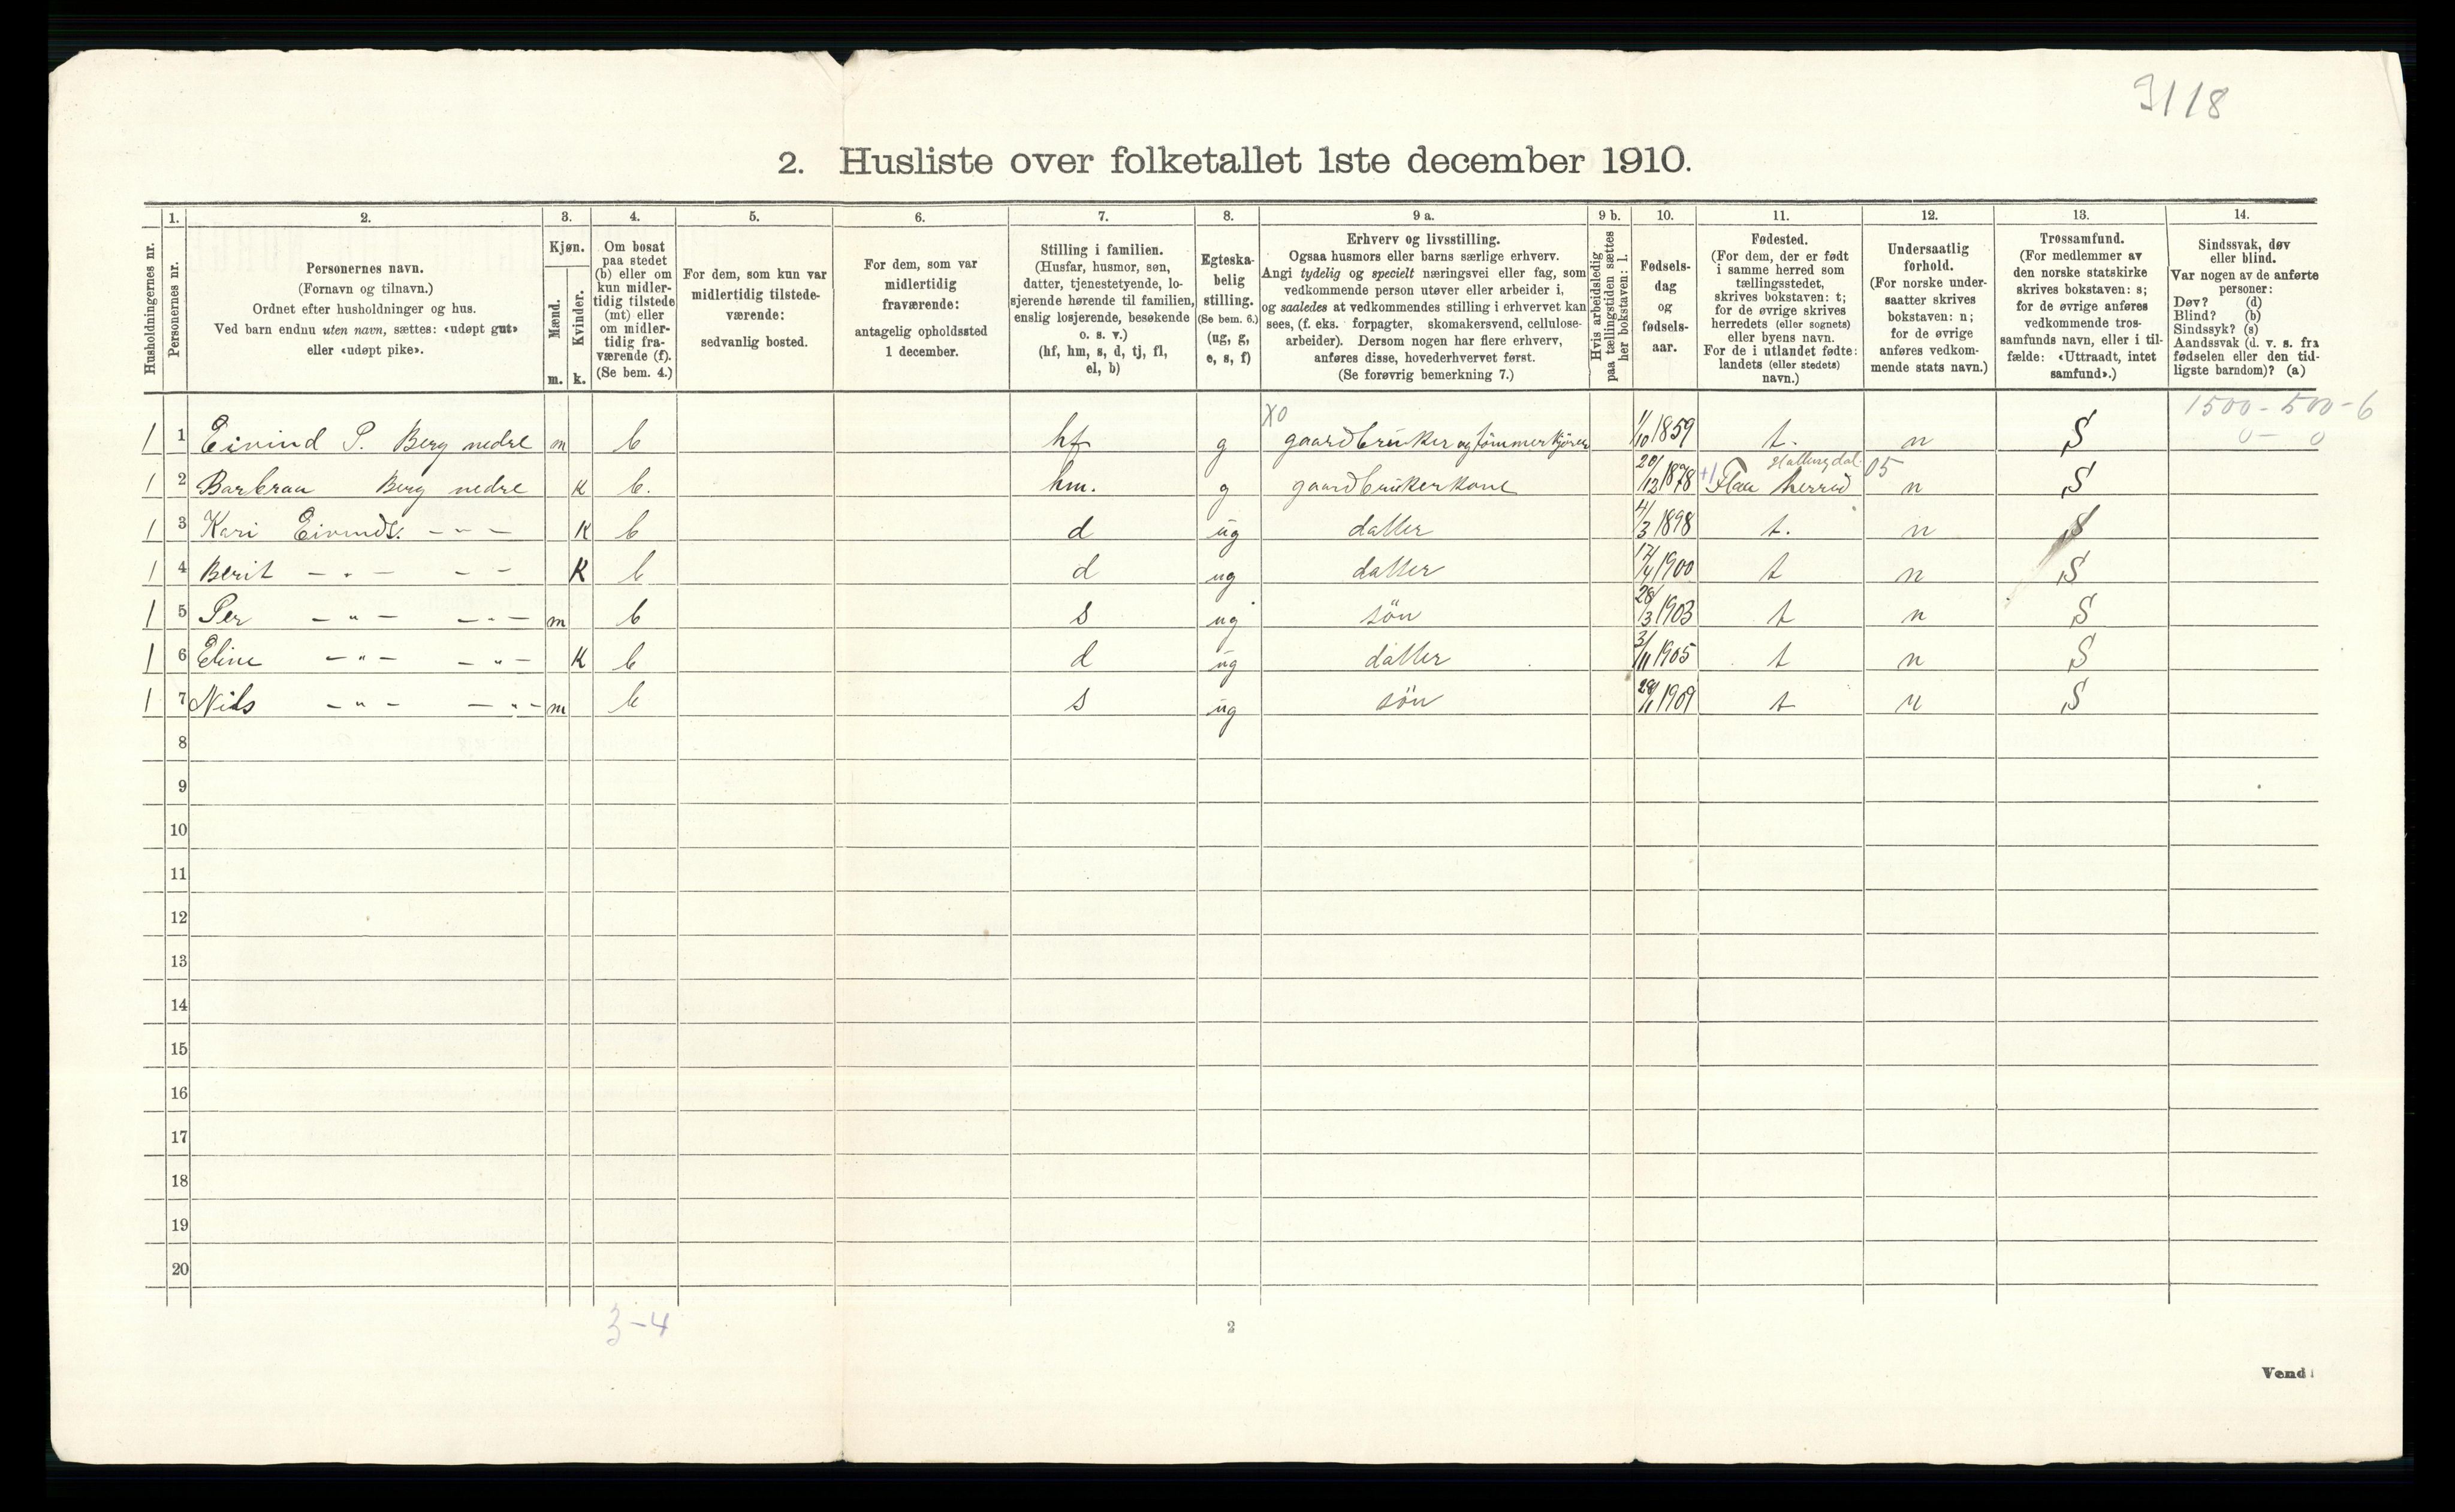 3118
2. Husliste over folketallet 1ste december 1910.
1. 2. 3. 4. 5. 6. 7. 8. 9 a. 9 b. 10. 11. 12. 13. 14.
Husholdningernes nr.
Personernes nr.
Personernes navn.
(Fornavn og tilnavn.)
Ordnet efter husholdninger og hus.
Ved barn endnu uten navn, sættes: «udøpt gut»
eller «udøpt pike».
Kjøn.
Mænd.
m.
Kvinder.
k.
Om bosat
paa stedet
(b) eller om
kun midler-
tidig tilstede
(mt) eller
om midler-
tidig fra-
værende (f).
(Se bem. 4.)
For dem, som kun var
midlertidig tilstede-
værende:
sedvanlig bosted.
For dem, som var
midlertidig
fraværende:
antagelig opholdssted
1 december.
Stilling i familien.
(Husfar, husmor, søn,
datter, tjenestetyende, lo-
sjerende hørende til familien,
enslig losjerende, besøkende
o. s. v.)
(hf, hm, s, d, tj, fl,
el, b)
Egteska-
belig
stilling.
(Se bem. 6.)
(ug, g,
e, s, f)
Erhverv og livsstilling.
Ogsaa husmors eller barns særlige erhverv.
Angi tydelig og specielt næringsvei eller fag, som
vedkommende person utøver eller arbeider i,
og saaledes at vedkommendes stilling i erhvervet kan
sees, (f. eks. forpagter, skomakersvend, cellulose-
arbeider). Dersom nogen har flere erhverv,
anføres disse, hovederhvervet først.
(Se forøvrig bemerkning 7.)
Hvis arbeidsledig
paa tællingstiden sættes
her bokstaven: l.
Fødsels-
dag
og
fødsels-
aar.
Fødested.
(For dem, der er født
i samme herred som
tællingsstedet,
skrives bokstaven: t;
for de øvrige skrives
herredets (eller sognets)
eller byens navn.
For de i utlandet fødte:
landets (eller stedets)
navn.)
Undersaatlig
forhold.
(For norske under-
saatter skrives
bokstaven: n;
for de øvrige
anføres vedkom-
mende stats navn.)
Trossamfund.
(For medlemmer av
den norske statskirke
skrives bokstaven: s;
for de øvrige anføres
vedkommende tros-
samfunds navn, eller i til-
fælde: «Uttraadt, intet
samfund».)
Sindssvak, døv
eller blind.
Var nogen av de anførte
personer:
Døv? (d)
Blind? (b)
Sindssyk? (s)
Aandssvak (d. v. s. fra
fødselen eller den tid-
ligste barndom)? (a)
X0 1500 - 500 - 6
1 1 Eivind P. Berg nedre m b hf g gaardbruker og tømmerkjører 1/10 1859 t. n S 0 - 0
Hallingdal. 05
1 2 Barbraa Berg nedre K b. hm. g gaardbrukerkone 20/12 1878 +1 Flaa herred n S
1 3 Kari Eivinds. - " - K b d ug datter 4/3 1898 t. n S
1 4 Berit - " - - - K b d ug datter 17/4 1900 t n S
1 5 Per - " - - " - m b s ug søn 28/3 1903 t n S
1 6 Eline - " - - " - K b d ug datter 3/11 1905 t n S
1 7 Nils - " - - " - m b s ug søn 1909 t n S
8
9
10
11
12
13
14
15
16
17
18
19
20
3-4
2
Vend!